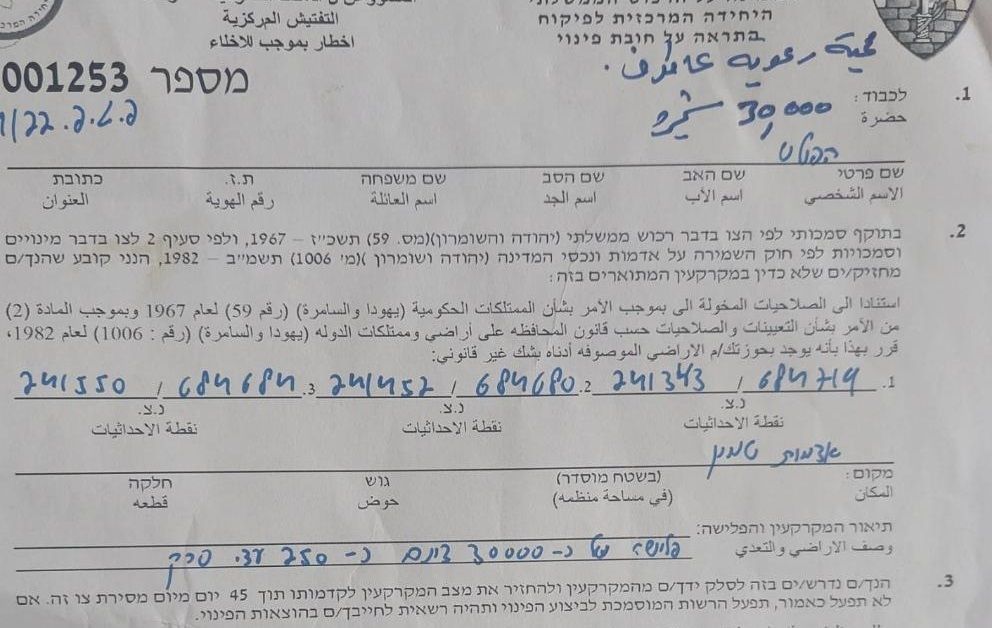 היחידה המרכזית לפיקוח
התראה על חובת פינוי
التفتيش المركزية
اخطار بموجب للاخلاء
מספר 001253
1. לכבוד:
حضرة
30,000
שם פרטי שם האב שם הסב שם משפחה ת.ז. כתובת
الاسم الشخصي اسم الأب اسم الجد اسم العائلة رقم الهوية العنوان
2. בתוקף סמכותי לפי הצו בדבר רכוש ממשלתי (יהודה והשומרון)(מס. 59) תשכ״ז – 1967, ולפי סעיף 2 לצו בדבר מינויים
וסמכויות לפי חוק השמירה על אדמות ונכסי המדינה (יהודה ושומרון )(מ׳ 1006) תשמ״ב – 1982, הנני קובע שהנך/ם
מחזיק/ים שלא כדין במקרקעין המתוארים בזה:
استنادا الى الصلاحيات المخولة الى بموجب الأمر بشأن الممتلكات الحكومية (يهودا والسامرة) (رقم 59) لعام 1967 وبموجب المادة (2)
من الأمر بشأن التعيينات و الصلاحيات حسب قانون المحافظه على أراضي وممتلكات الدوله (يهودا والسامرة) (رقم : 1006) لعام 1982،
قرر بهذا بأنه يوجد بحوزتك/م الاراضي الموصوفه أدناه بشك غير قانوني:
1. 684714 / 241343 2. 684680 / 241452 3. 684684 / 241550
נ.צ. נ.צ. נ.צ.
نقطة الاحداثيات نقطة الاحداثيات نقطة الاحداثيات
אדמות טמון
מקום: (בשטח מוסדר) גוש חלקה
المكان (في مساحة منظمه) حوض قطعه
תיאור המקרקעין והפלישה:
وصف الاراضي والتعدي
פלישה של כ- 30000 דונם כ- 250 עצי סרק
3. הנך/ם נדרש/ים בזה לסלק ידך/ם מהמקרקעין ולהחזיר את מצב המקרקעין לקדמותו תוך 45 יום מיום מסירת צו זה. אם
לא תפעל כאמור, תפעל הרשות המוסמכת לביצוע הפינוי ותהיה רשאית לחייבך/ם בהוצאות הפינוי.